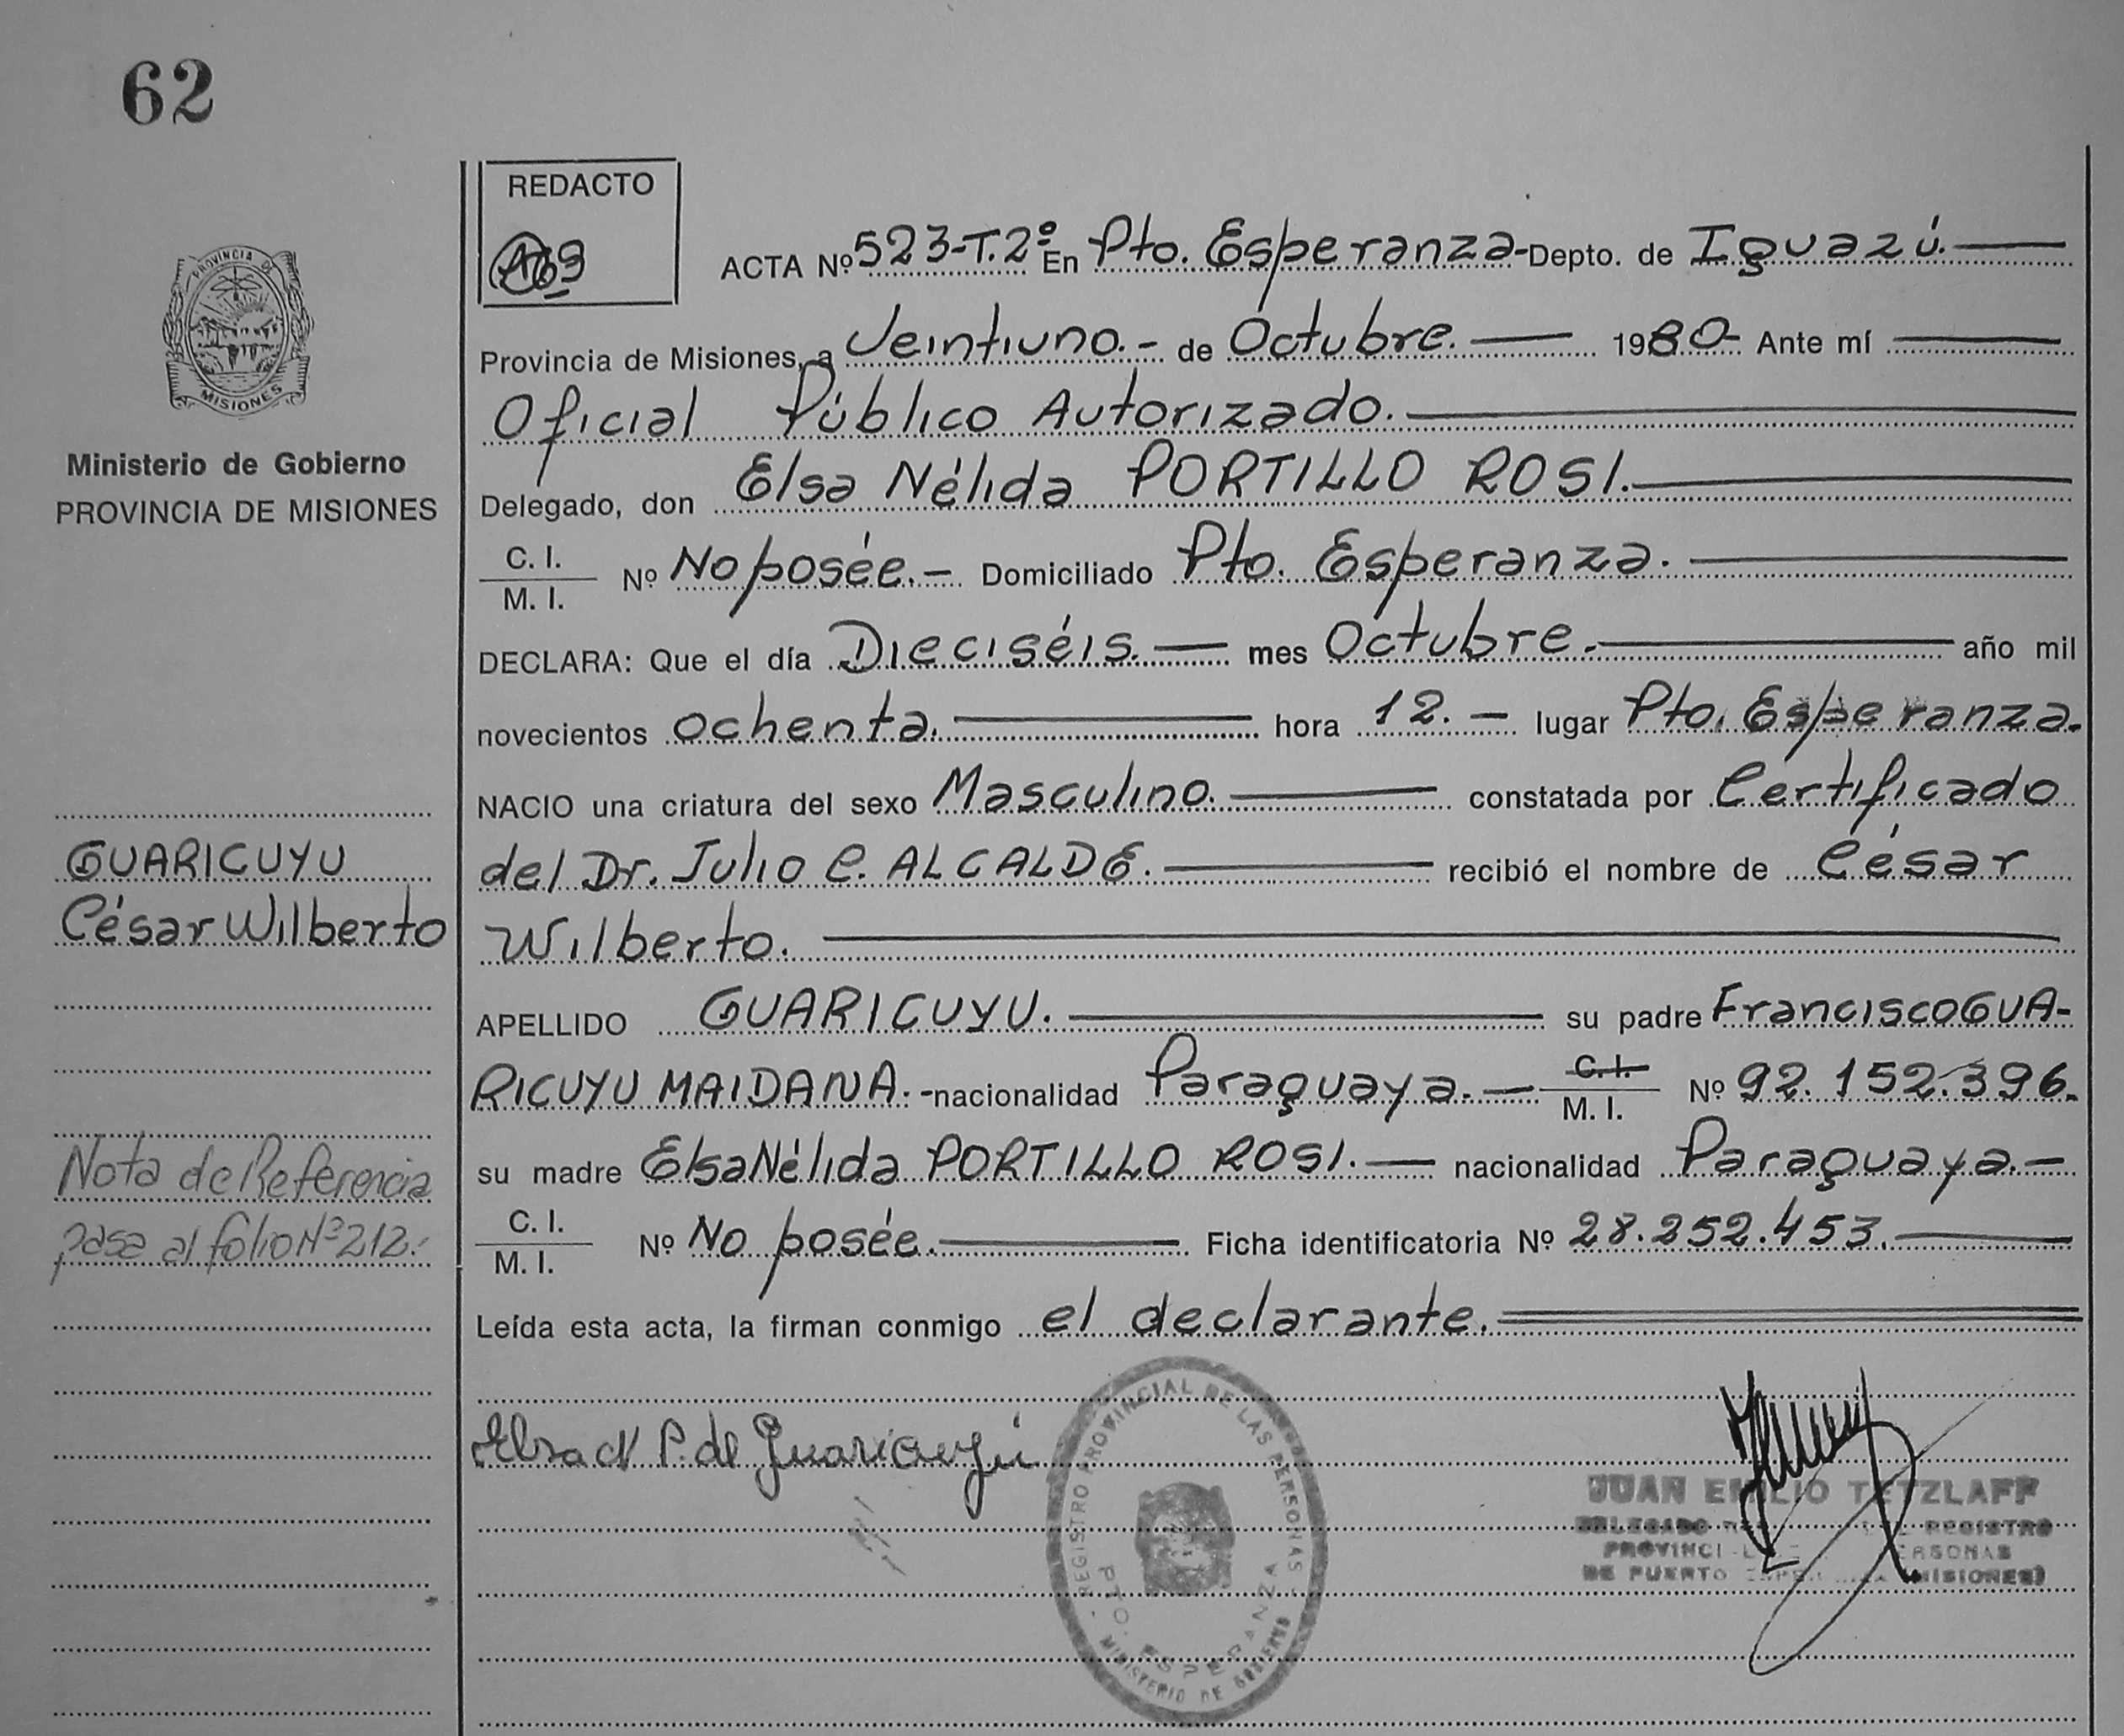 62
REDACTO
ACTA Nº 523-T.2º En Pto. Esperanza - Depto. de Iguazú.
Provincia de Misiones, a Veintiuno.- de Octubre. 1980- Ante mí
Oficial Público Autorizado.
Delegado, don Elsa Nélida PORTILLO ROSI.
C. I.
M. I. Nº No posée.- Domiciliado Pto. Esperanza.
DECLARA: Que el día Dieciséis. mes Octubre. año mil
novecientos ochenta. hora 12.- lugar Pto. Esperanza.
NACIO una criatura del sexo Masculino. constatada por Certificado
del Dr. Julio C. ALCALDE. recibió el nombre de César
Wilberto.
APELLIDO GUARICUYU. su padre Francisco GUA-
RICUYU MAIDANA.- nacionalidad Paraguaya. C. I.
M. I. Nº 92.152.396.
su madre Elsa Nélida PORTILLO ROSI. nacionalidad Paraguaya.-
C. I.
M. I. Nº No posée. Ficha identificatoria Nº 28.252.453.
Leída esta acta, la firman conmigo el declarante.
PROVINCIA DE
MISIONES
Ministerio de Gobierno
PROVINCIA DE MISIONES
GUARICUYU
César Wilberto
Nota de Referencia
pasa al folio Nº 212.-
Elsa N P. de Guaricuyú
REGISTRO PROVINCIAL DE LAS PERSONAS
PTO. ESPERANZA
MINISTERIO DE GOBIERNO
JUAN EMILIO TETZLAFF
DELEGADO REGISTRO
PROVINCIAL PERSONAS
DE PUERTO ESPERANZA (MISIONES)